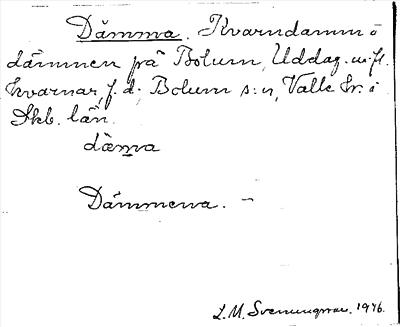 Dämma. Kvarndamm ö
dämmen på Bolum, Uddag. m. fl.
kvarnar, f. d. Bolum s:n, Valle hr. i
Skb. län.
däma
Dämmena. –
L. M. Svenungsson. 1946.